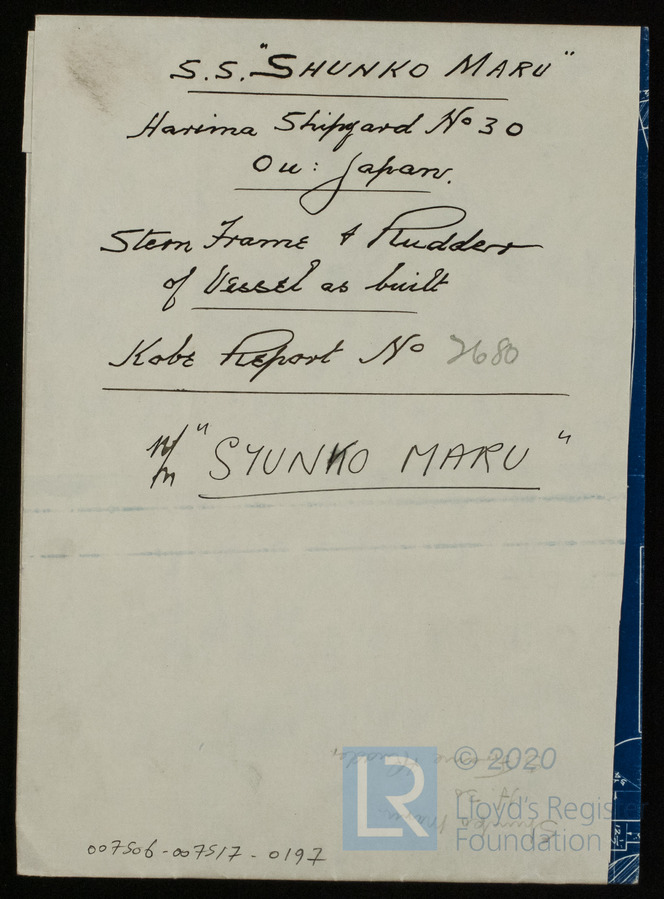 S.S. "SHUNKO MARU"
Harima Shipyard No 30
Ou: Japan.
Stern Frame & Rudder
of Vessel as built
Kobe Report No 2680
"SYUNKO MARU"
© 2020
LR
Lloyd's Register
Foundation
007506-007517-0197